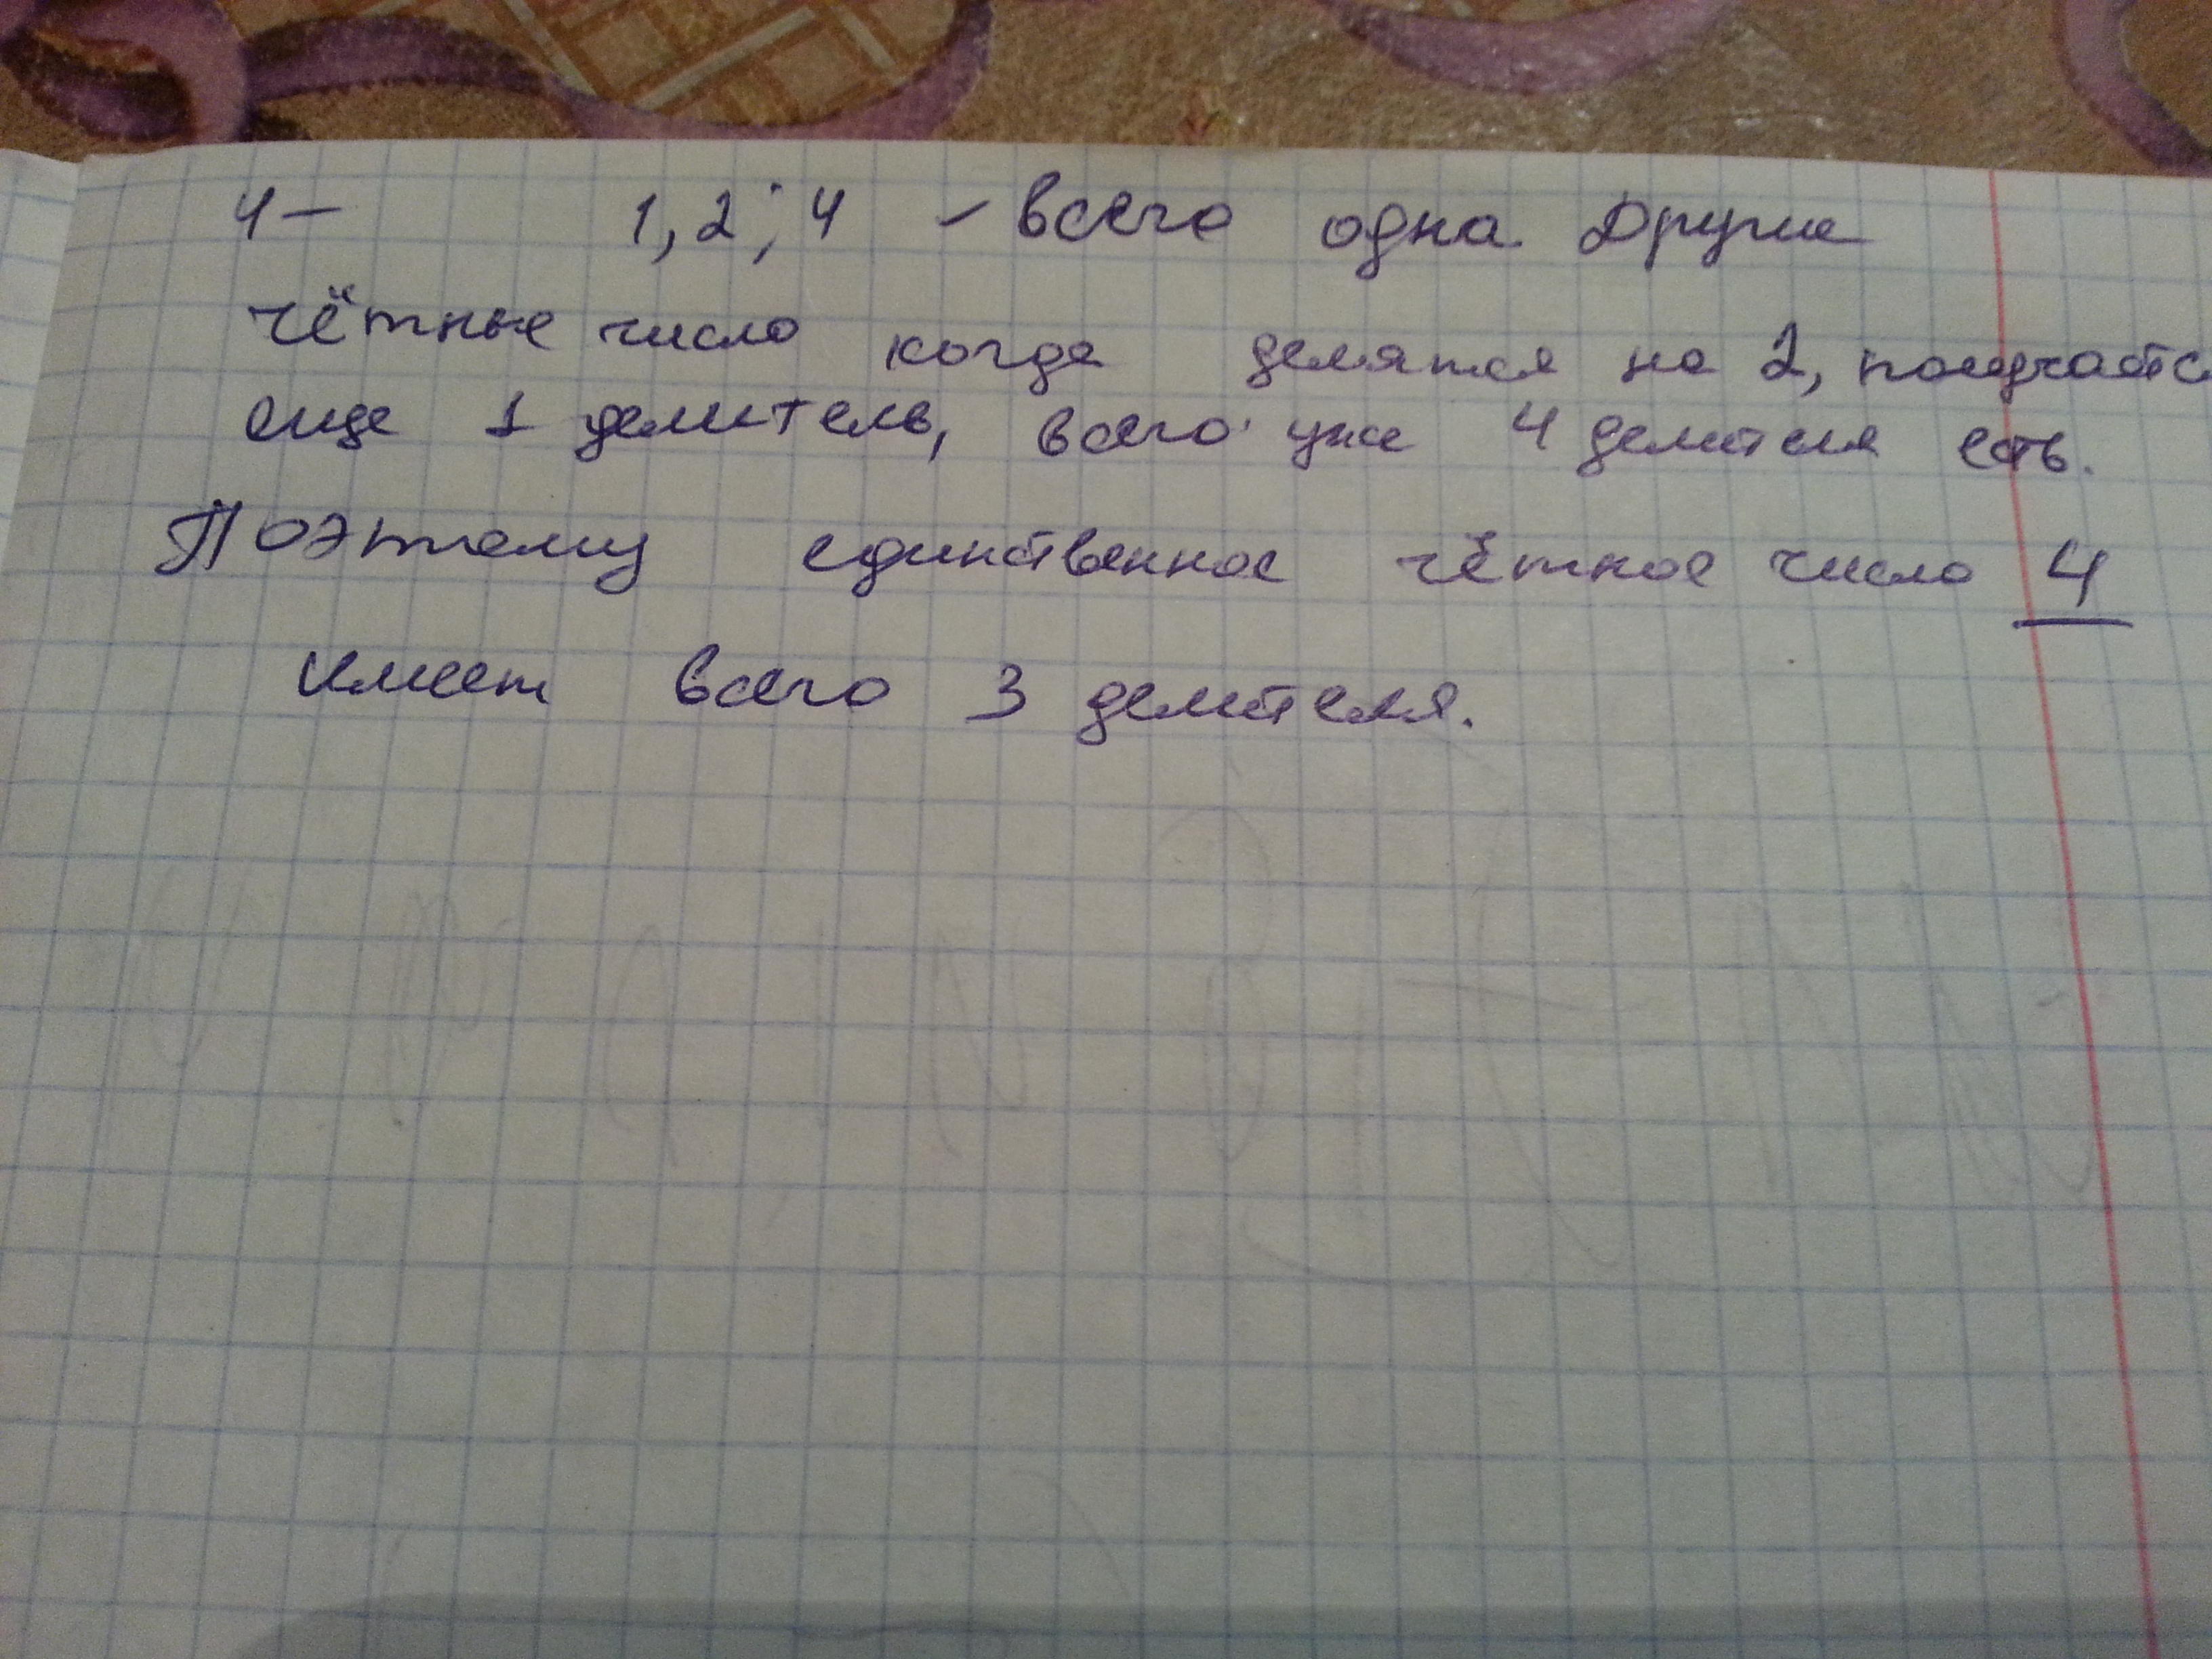 4 – 1, 2; 4 – всего одна. Другие
чётные число когда делятся на 2, получаетс
еще 1 делитель, всего уже 4 делителя есть.
Поэтому единственное чётное число 4
имеет всего 3 делителя.